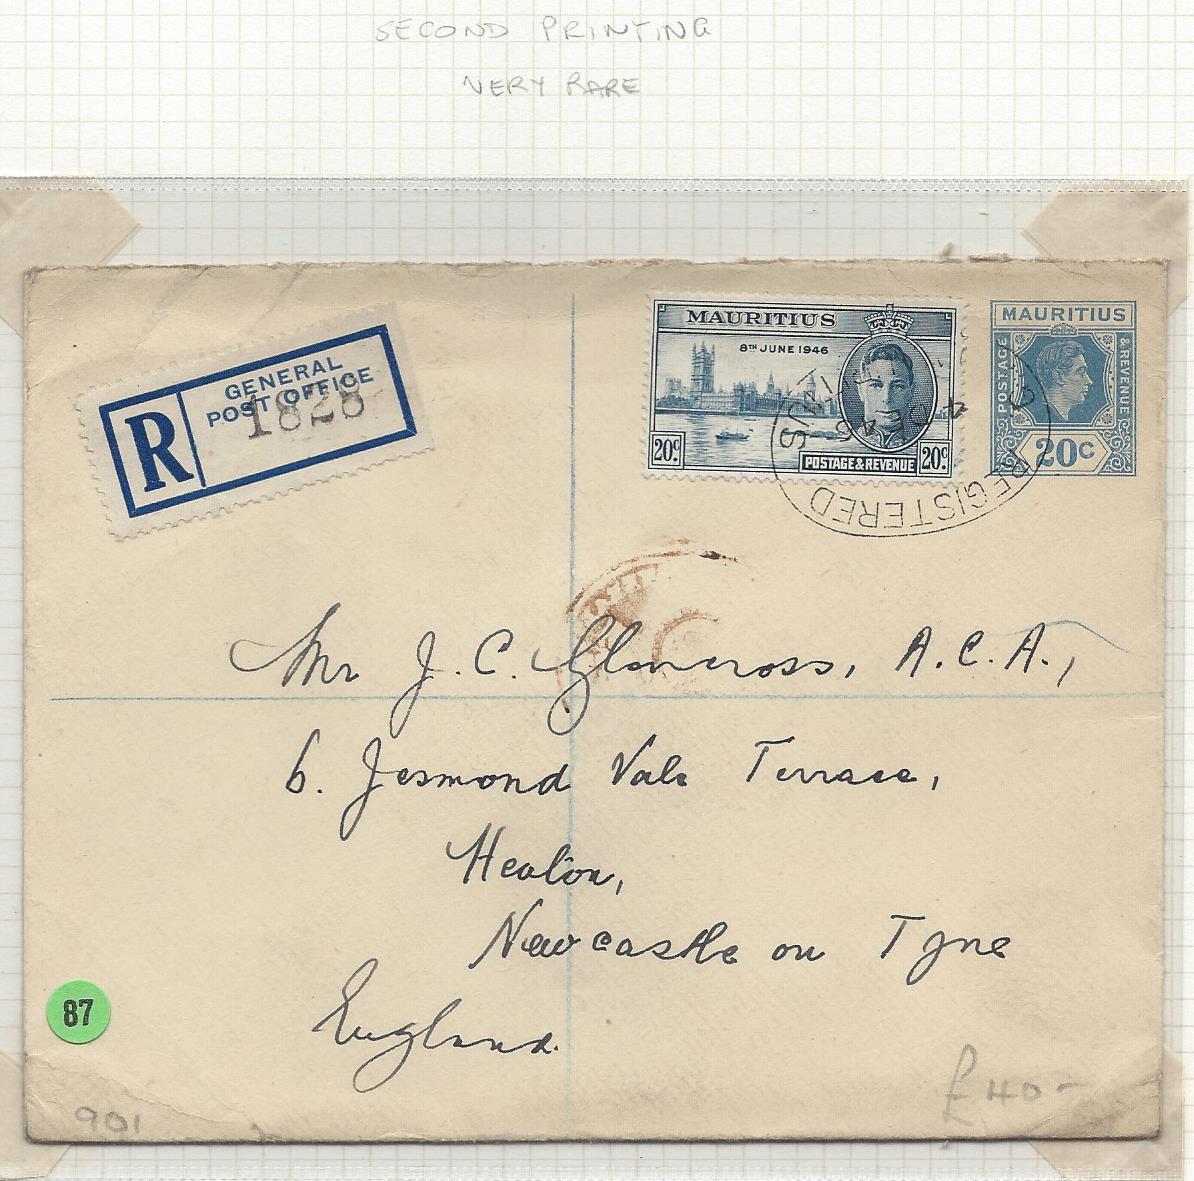 SECOND PRINTING
VERY RARE
R
GENERAL
POST OFFICE
1828
MAURITIUS
8TH JUNE 1946
20c
POSTAGE & REVENUE
20c
MAURITIUS
POSTAGE
& REVENUE
20c
REGISTERED
4 DE 46
Mr J. C. Glencross, A.C.A.,
6. Jesmond Vale Terrace,
Heaton,
Newcastle on Tyne
England.
87
901
£40-